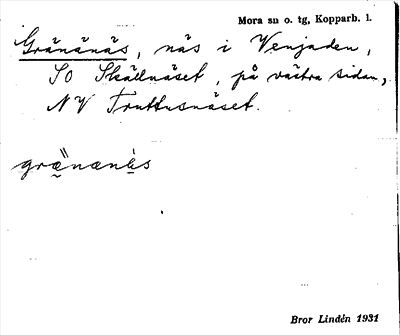 Mora sn o. tg, Kopparb. l.
Gränänäs, näs i Venjaden,
SO Skällnäset, på västra sidan,
NV Truttusnäset.
grænænæs
Bror Lindén 1931